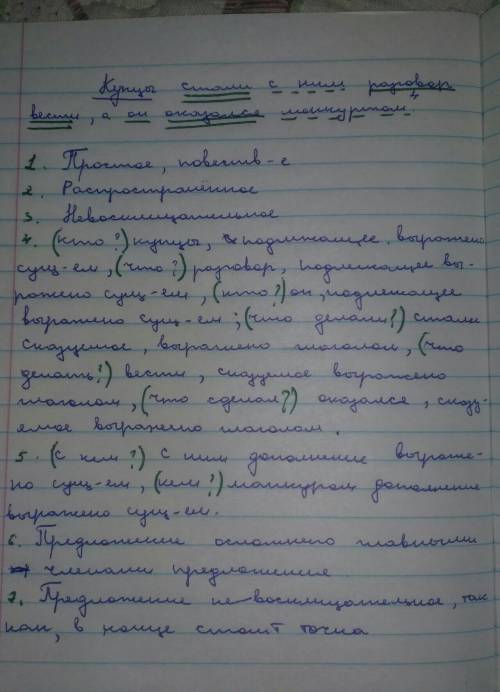 Купцы стали с ним разговор
вести, а он оказался манкуртом.
1. Простое, повеств-е
2. Распространённое
3. Невосклицательное
4. (кто?) купцы, подлежащее выражено
сущ-ем, (что?) разговор, подлежащее вы-
ражено сущ-ем, (кто?) он, подлежащее
выражено сущ-ем; (что делали?) стали
сказуемое, выражено глаголом, (что
делать?) вести, сказуемое выражено
глаголом, (что сделал?) оказался, сказу-
емое выражено глаголом.
5. (с кем?) с ним дополнение выраже-
но сущ-ем, (кем?) манкуром дополнение
выражено сущ-ем.
6. Предложение осложнено главными
членами предложения
7. Предложение не восклицательное, так
как, в конце стоит точка